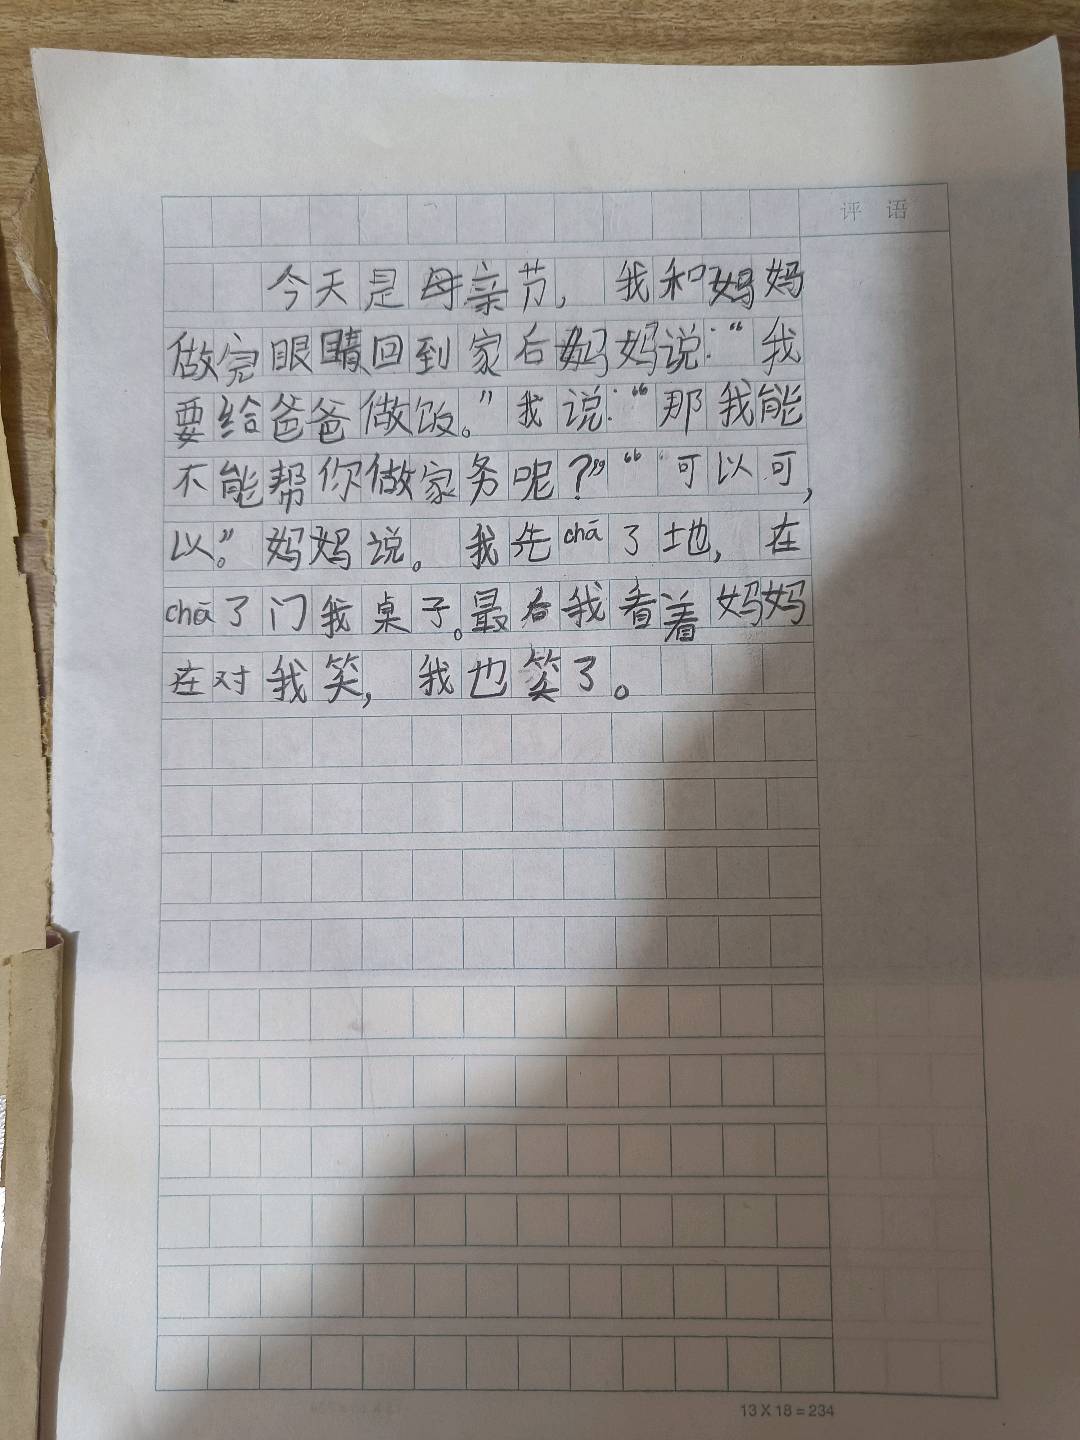 评 语
今天是母亲节，我和妈妈
做完眼睛回到家后妈妈说：“我
要给爸爸做饭。”我说：“那我能
不能帮你做家务呢？”“可以可，
以。”妈妈说。我先chā了地，在
chā了门我桌子。最后我看着妈妈
在对我笑，我也笑了。
13 X 18 = 234